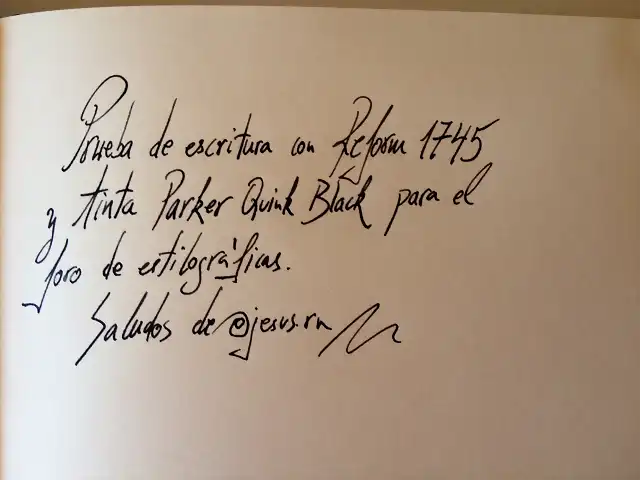 Prueba de escritura con Reform 1745
y tinta Parker Quink Black para el
foro de estilográficas.
Saludos de @jesus.rn